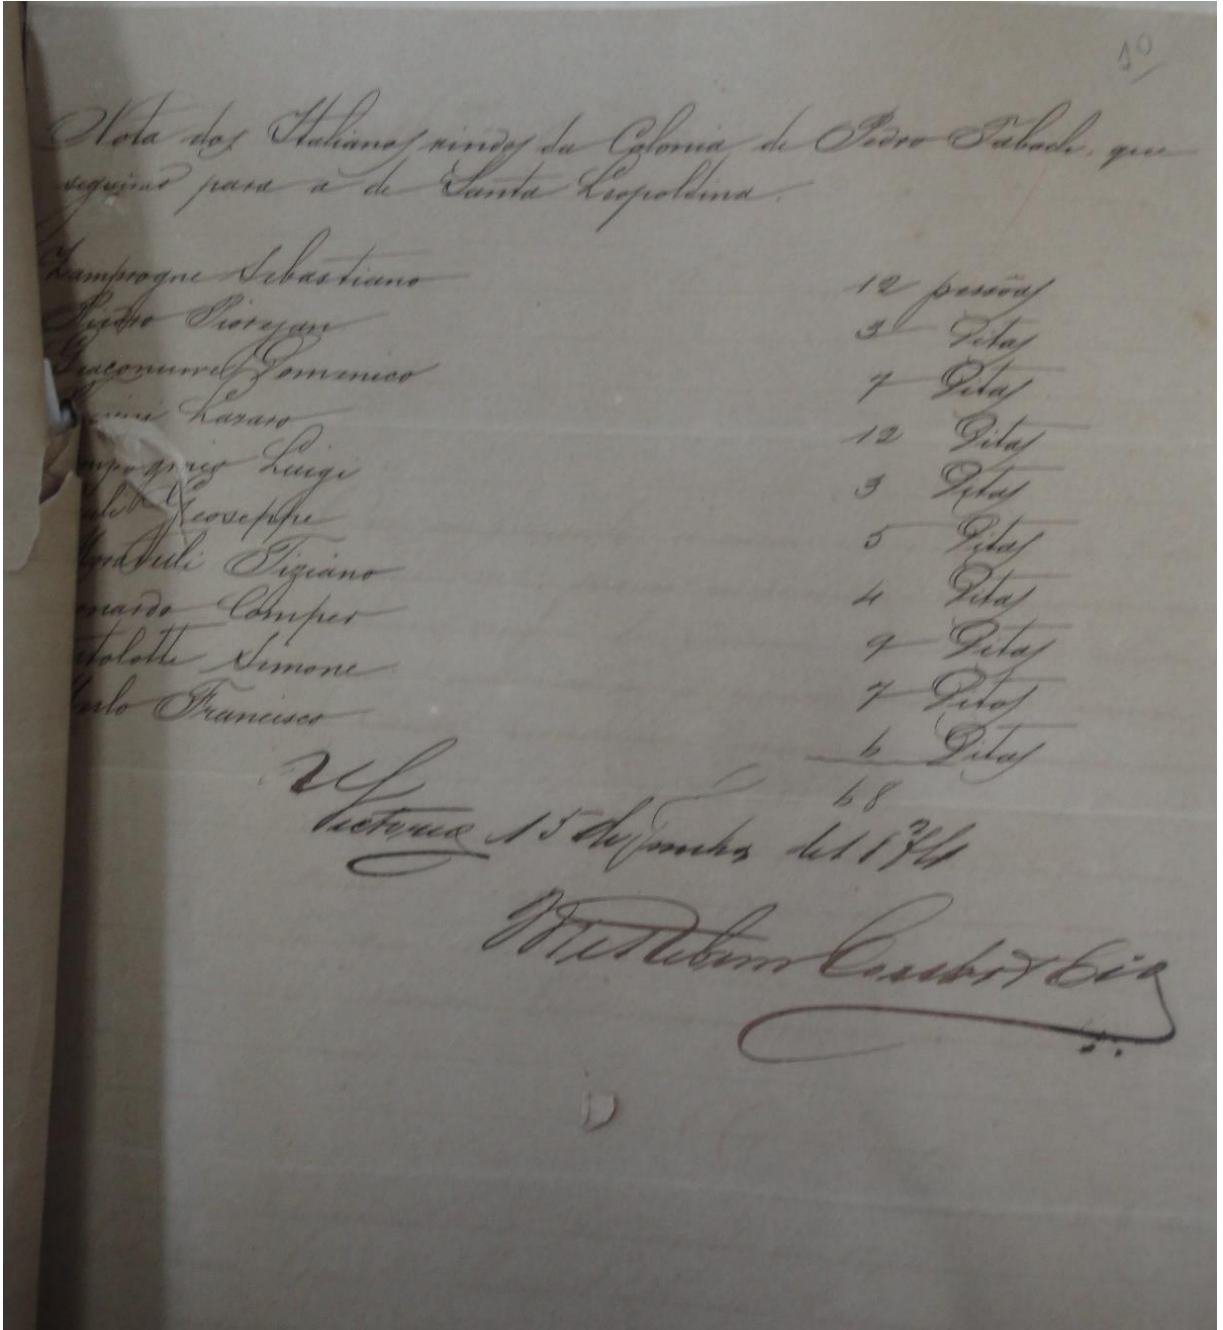 10
Nota dos Italianos vindos da Colonia de Pedro Tabachi, que
seguirão para a de Santa Leopoldina.
Zamprogne Sebastiano 12 pessôas
Pietro 3 Ditas
Domenico 7 Ditas
Lazaro 12 Ditas
Luigi 3 Ditas
Geoseppe 5 Ditas
Tiziano 4 Ditas
onardo Comper 9 Ditas
tolotti Simone 7 Ditas
arlo Francisco 6 Ditas
68
Victoria 15 de Junho de 1874